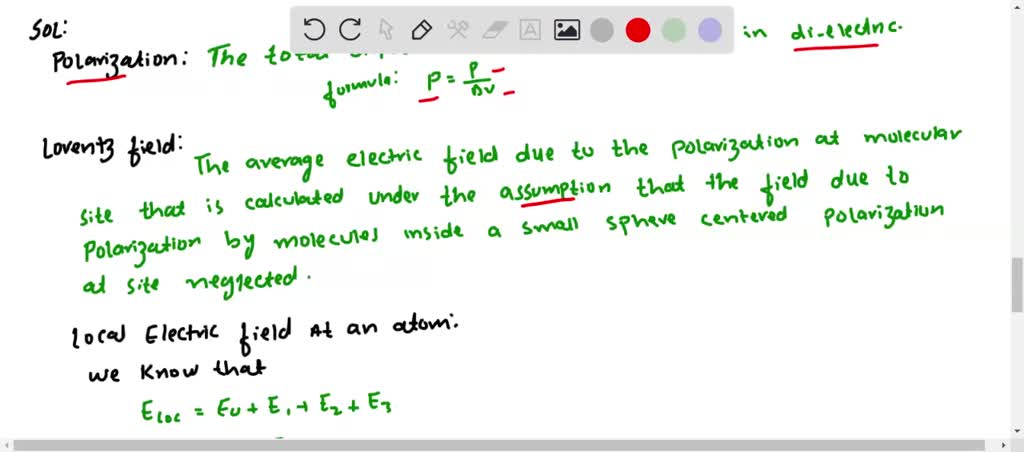 SOL:
Polarization: The total in di-electric.
formula: P = P/ΔV
Lorentz field:
The average electric field due to the polarization at molecular
site that is calculated under the assumption that the field due to
Polarization by molecules inside a small sphere centered polarization
at site neglected.
local Electric field At an atom:
we Know that
E loc = E0 + E1 + E2 + E3